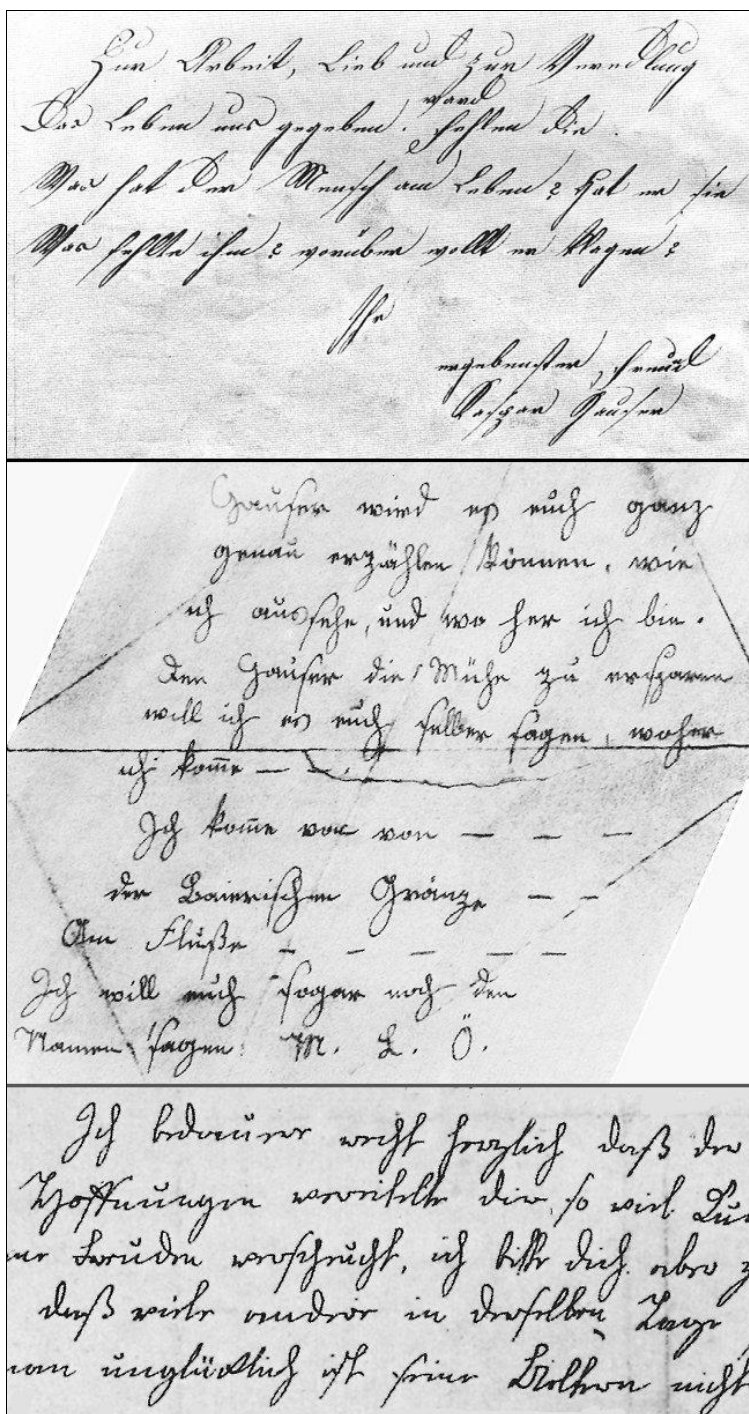 Zur Arbeit, Lieb und zur Veredlung
ward
Das Leben uns gegeben. fehlen die
Was hat der Mensch am Leben? Hat er sie
Was fehlte ihm? worüber wollt er klagen?
Ihr
ergebenster Freund
Kaspar Hauser
Hauser wird es euch ganz
genau erzählen können, wie
ich aussehe, und wo her ich bin.
Den Hauser die Mühe zu ersparen
will ich es euch selber sagen, woher
ich komme – –
Ich komme von von – – –
der Baierischen Gränze – –
Am Fluße – – – – –
Ich will euch sogar noch den
Namen sagen: M. L. Ö.
Ich bedauere recht herzlich daß der
Hoffnungen vereitelte die, so viel
Freuden verscheucht, ich bitte dich aber
daß viele andere in derselben Lage
unglücklich ist seine Eltern nicht